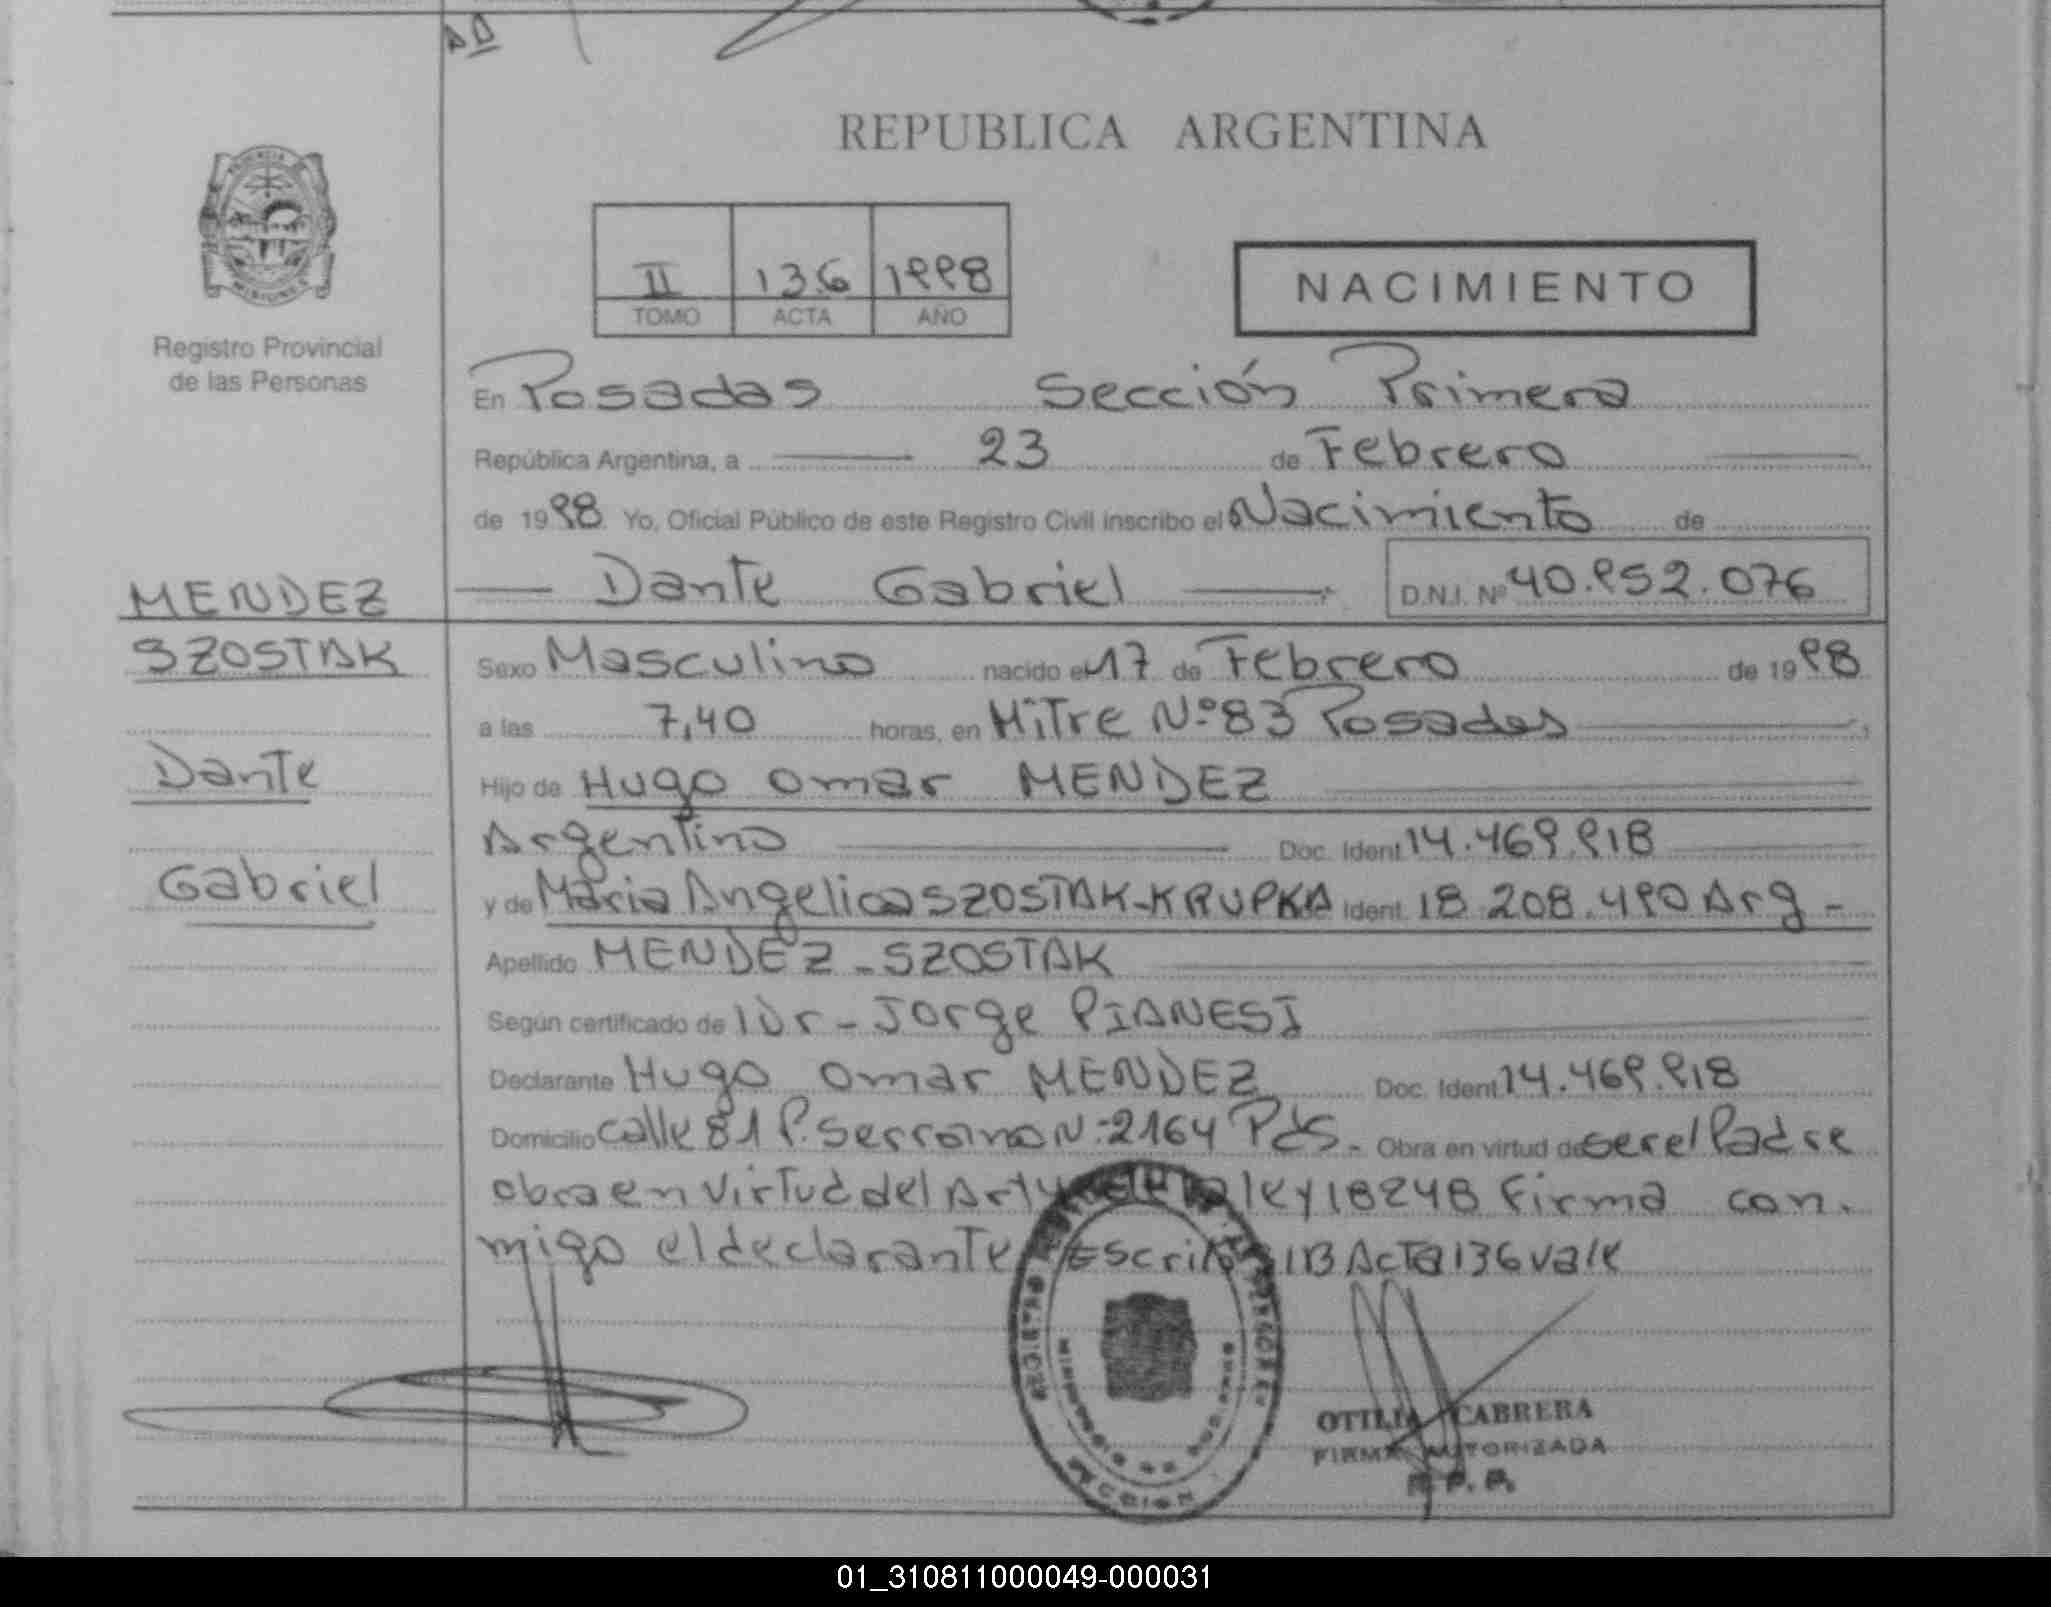 REPUBLICA ARGENTINA
PROVINCIA
MISIONES
Registro Provincial
de las Personas
II 136 1998
TOMO ACTA AÑO
NACIMIENTO
En Posadas Sección Primera
República Argentina, a 23 de Febrero
de 1998. Yo, Oficial Público de este Registro Civil inscribo el Nacimiento de
MENDEZ
Dante Gabriel D.N.I. Nº 40.952.076
SZOSTAK
Sexo Masculino nacido el 17 de Febrero de 1998
a las 7,40 horas, en Mitre Nº 83 Posadas
Dante
Hijo de Hugo Omar MENDEZ
Argentino Doc. Ident. 14.469.918
Gabriel
y de Maria Angelica SZOSTAK-KRUPKA Ident. 18.208.490 Arg -
Apellido MENDEZ - SZOSTAK
Según certificado de Dr - Jorge PIANESI
Declarante Hugo Omar MENDEZ Doc. Ident. 14.469.918
Domicilio calle 81 P. Serrano N: 2164 Pds. - Obra en virtud de ser el Padre
obra en virtud del Art 4 de la ley 18248 Firma con-
migo el declarante Acta 136 vale
OTILIA CABRERA
FIRMA AUTORIZADA
R. P. P.
SECCION
01_310811000049-000031